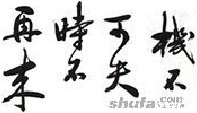 機不
可失
時不
再来
shufa.com